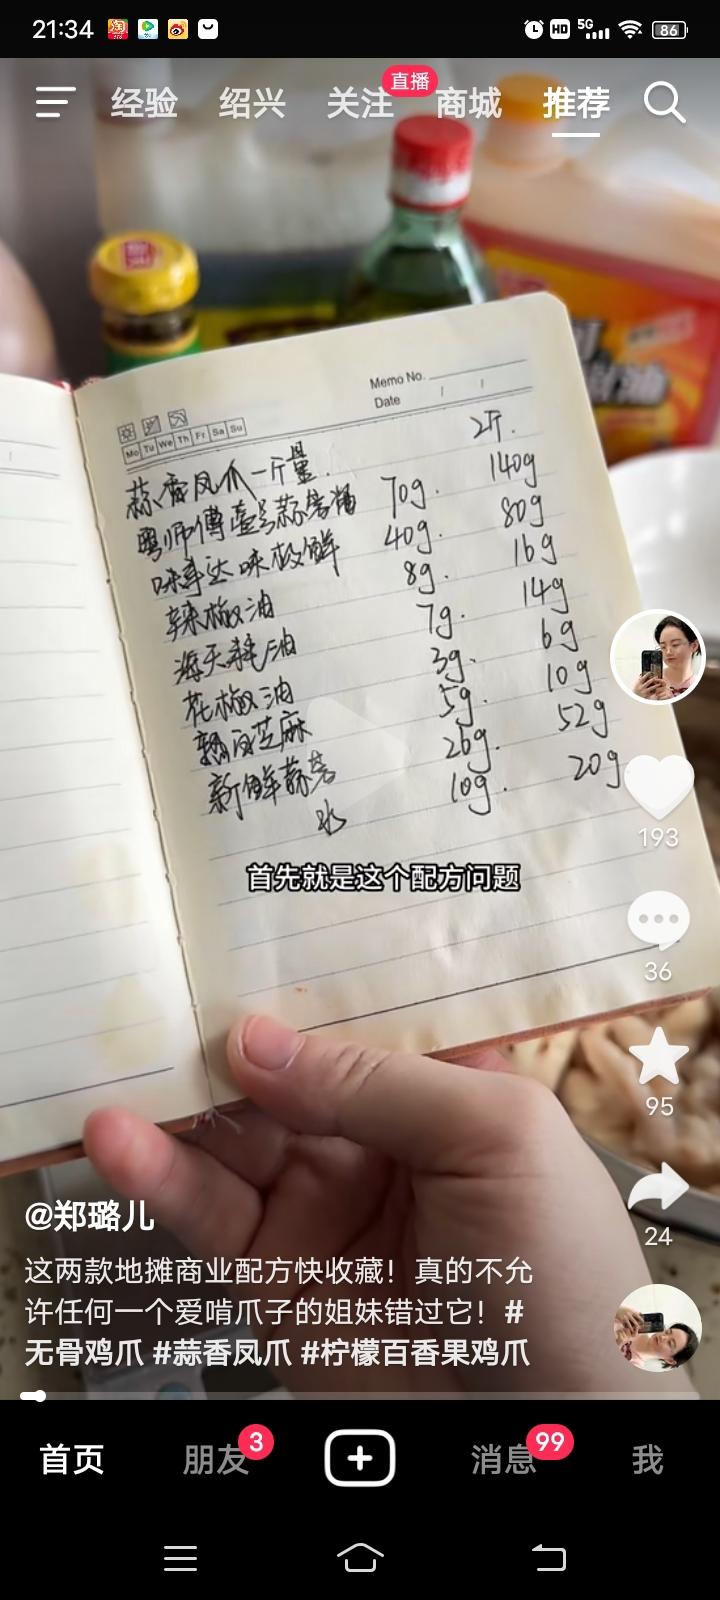 21:34
HD 5G 86
经验 绍兴 关注 直播 商城 推荐
Memo No.
Date / /
Mo Tu We Th Fr Sa Su
2斤.
蒜香凤爪一斤量.
粤师傅壹号蒜蓉酱 70g. 140g
味事达味极鲜 40g. 80g
辣椒油 8g. 16g
海天耗油 7g. 14g
花椒油 3g. 6g
熟白芝麻 5g. 10g
新鲜蒜蓉 26g. 52g
水 10g. 20g
首先就是这个配方问题
193
36
95
24
@郑璐儿
这两款地摊商业配方快收藏！真的不允
许任何一个爱啃爪子的姐妹错过它！#
无骨鸡爪 #蒜香凤爪 #柠檬百香果鸡爪
首页 朋友 3 消息 99 我